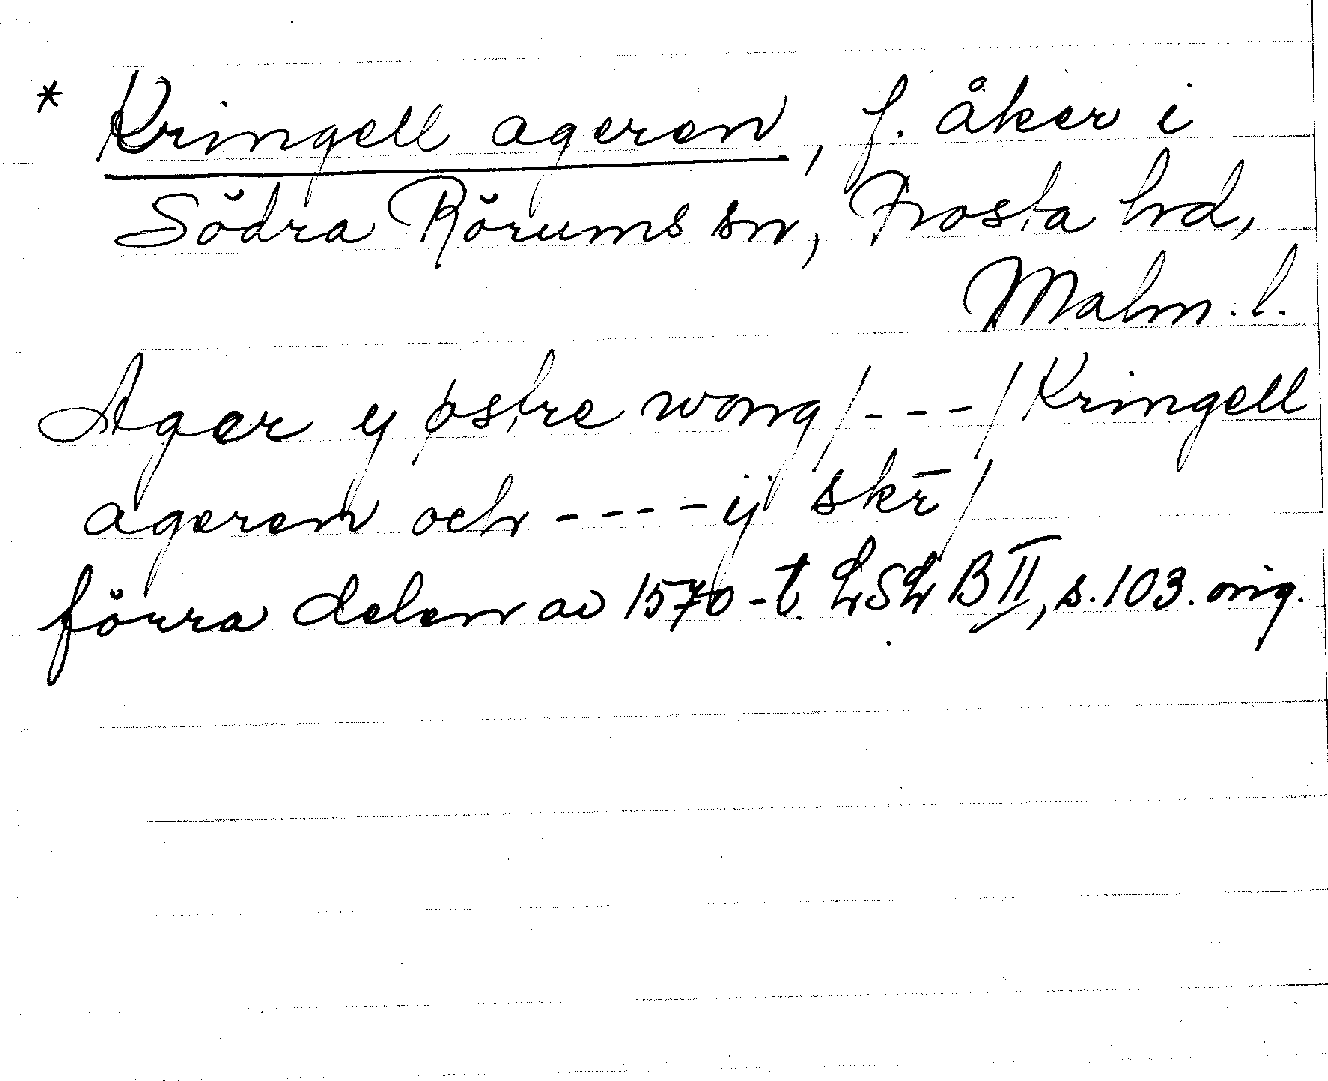 * Kringell ageren, f. åker i
Södra Rörums sn, Frosta hd,
Malm. l.
Ager y østre wong /---/ Kringell
ageren och ---- ij skr̄ /
förra delen av 1570-t. LSL B II, s. 103. orig.